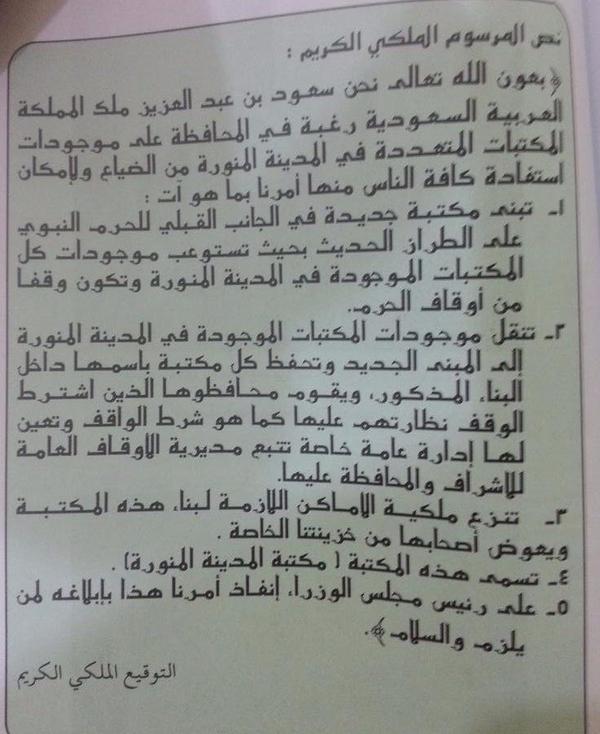 نص المرسوم الملكي الكريم :
﴿ بعون الله تعالى نحن سعود بن عبد العزيز ملك المملكة
العربية السعودية رغبة في المحافظة على موجودات
المكتبات المتعددة في المدينة المنورة من الضياع ولإمكان
استفادة كافة الناس منها أمرنا بما هو آت :
١ـ تبنى مكتبة جديدة في الجانب القبلي للحرم النبوي
على الطراز الحديث بحيث تستوعب موجودات كل
المكتبات الموجودة في المدينة المنورة وتكون وقفا
من أوقاف الحرم.
٢ـ تنقل موجودات المكتبات الموجودة في المدينة المنورة
إلى المبنى الجديد وتحفظ كل مكتبة باسمها داخل
البناء المذكور، ويقوم محافظوها الذين اشترط
الوقف نظارتهم عليها كما هو شرط الواقف وتعين
لها إدارة عامة خاصة تتبع مديرية الأوقاف العامة
للإشراف والمحافظة عليها.
٣ـ تنزع ملكية الأماكن اللازمة لبناء هذه المكتبة
ويعوض أصحابها من خزينتنا الخاصة .
٤ـ تسمى هذه المكتبة ( مكتبة المدينة المنورة) .
٥ـ على رئيس مجلس الوزراء إنفاذ أمرنا هذا بإبلاغه لمن
يلزم والسلام ﴾.
التوقيع الملكي الكريم